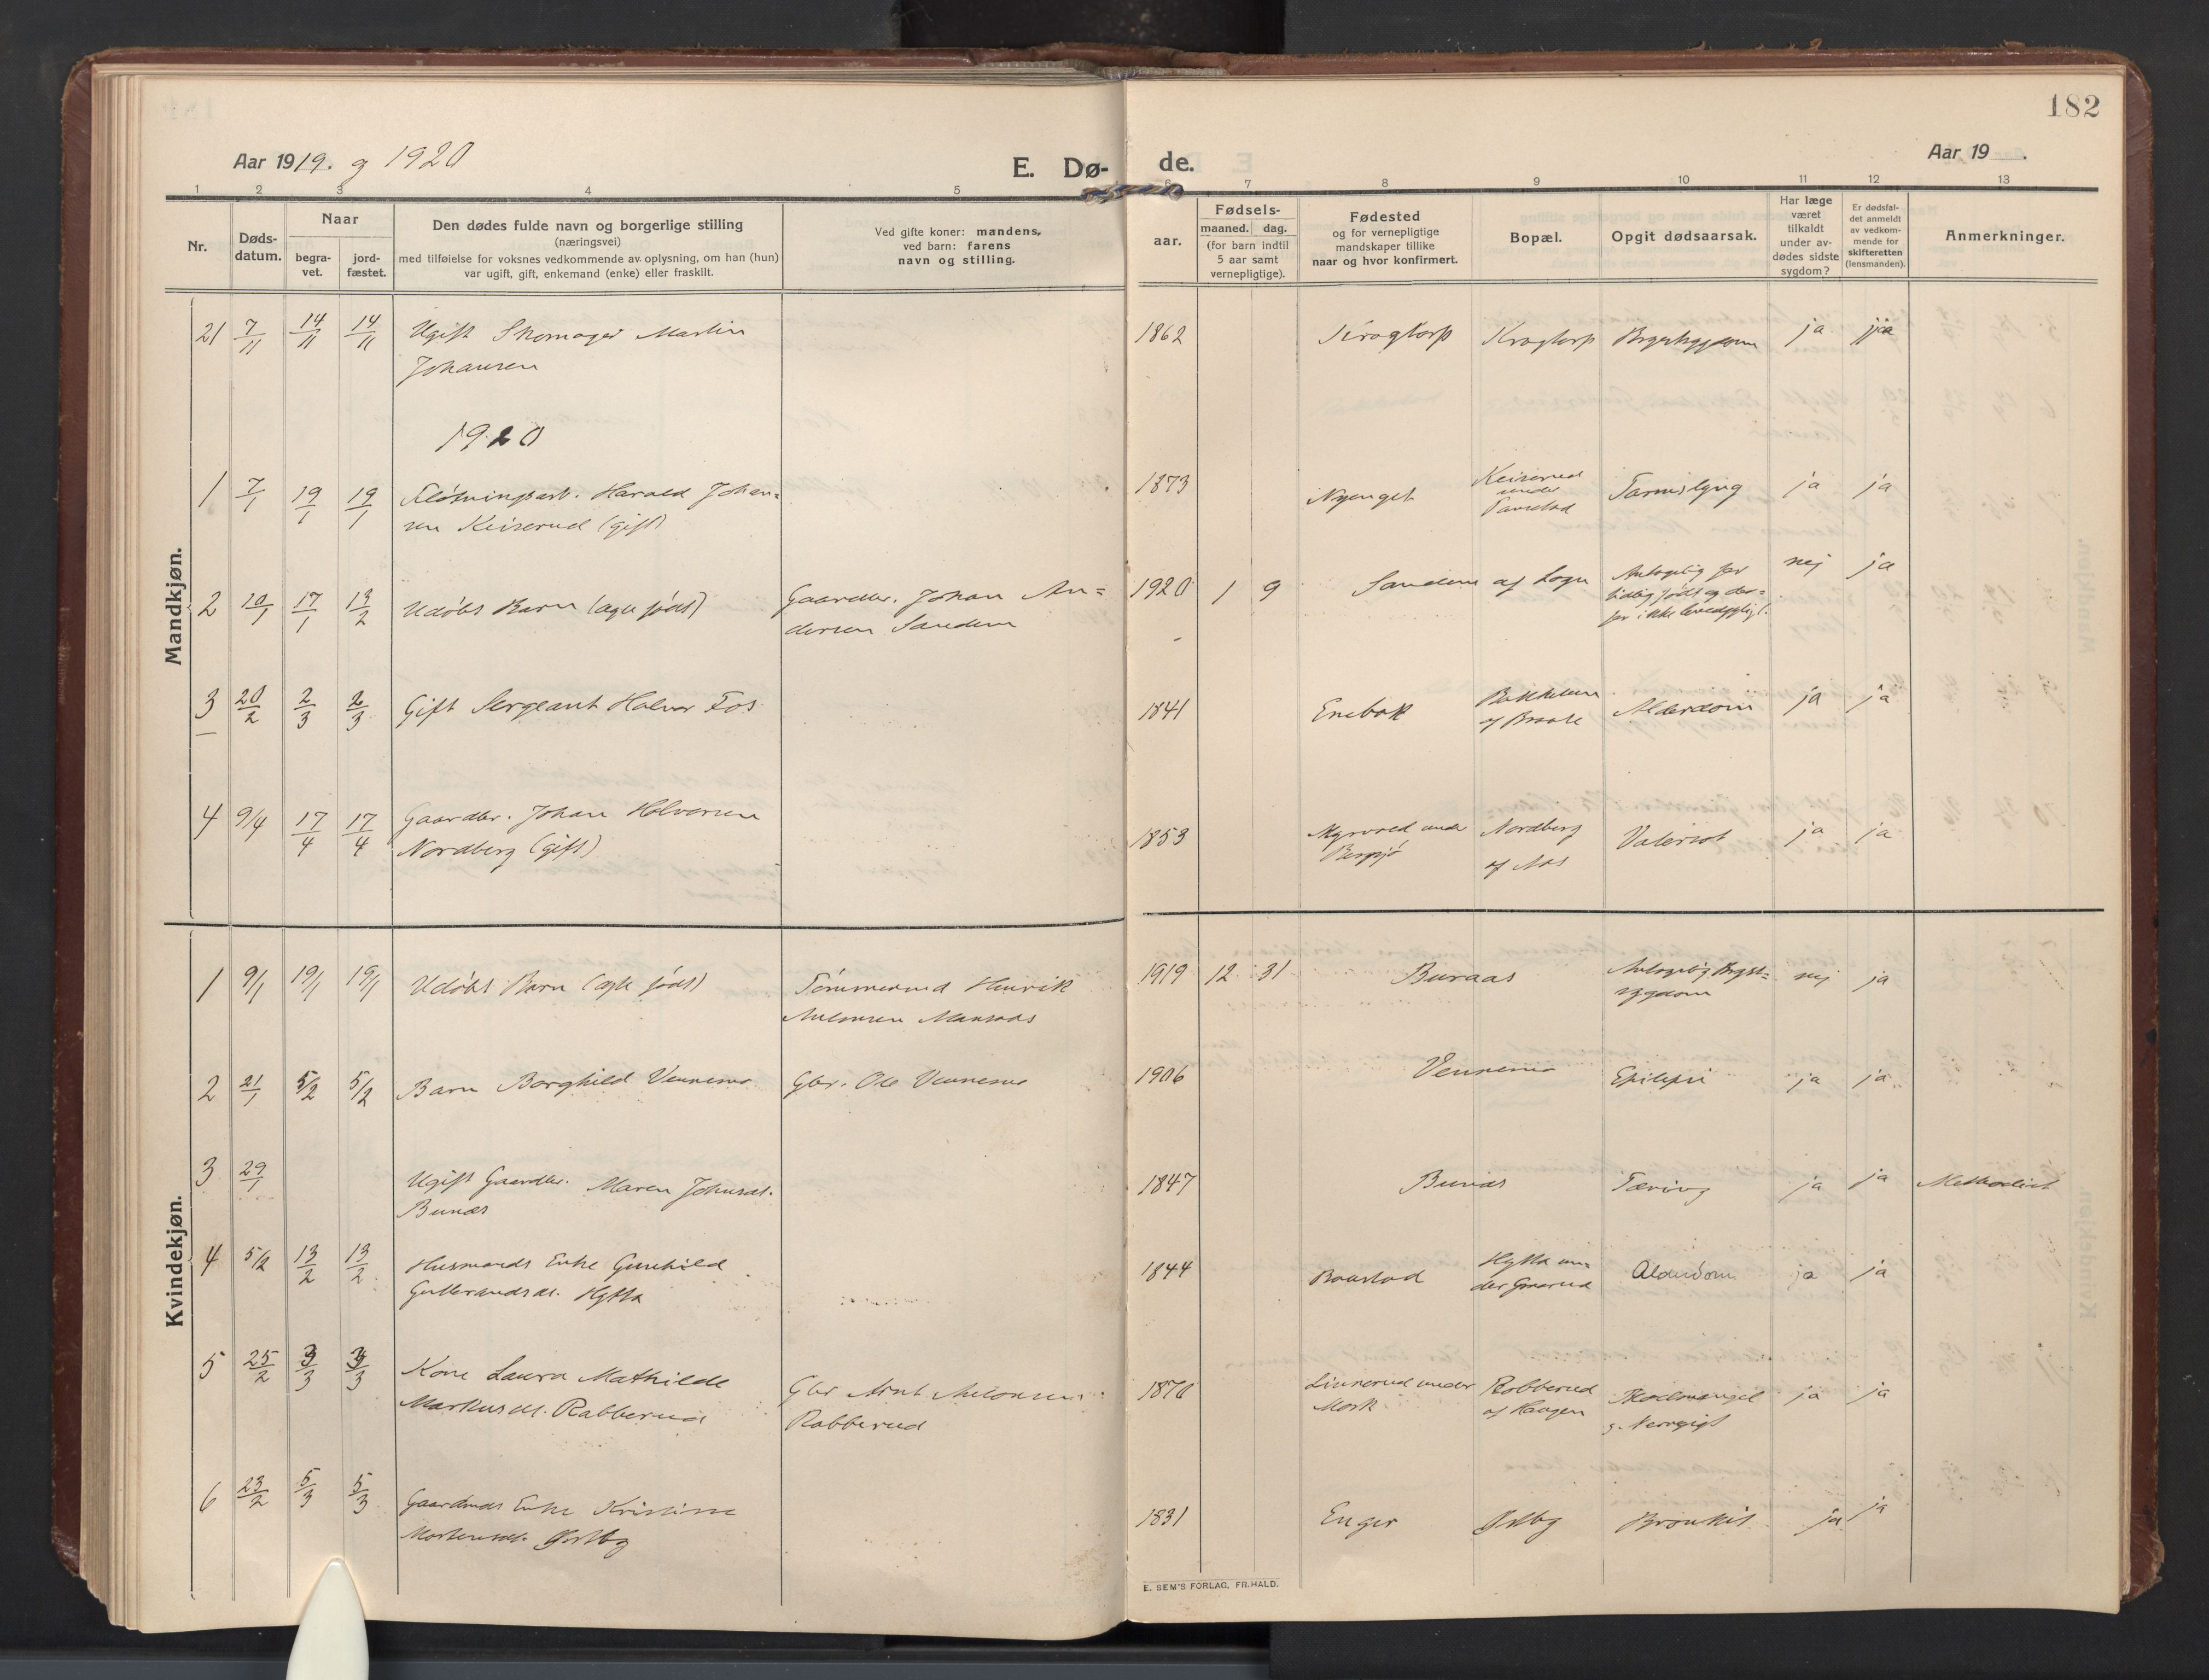 182
Aar 1919. og 1920
E. Dø-
de.
Aar 19 .
1 2 3 4 5 6 7 8 9 10 11 12 13
Nr.
Døds-
datum.
Naar
begra-
vet.
jord-
fæstet.
Den dødes fulde navn og borgerlige stilling
(næringsvei)
med tilføielse for voksnes vedkommende av oplysning, om han (hun)
var ugift, gift, enkemand (enke) eller fraskilt.
Ved gifte koner: mandens,
ved barn: farens
navn og stilling.
aar.
Fødsels-
maaned. dag.
(for barn indtil
5 aar samt
vernepligtige).
Fødested
og for vernepligtige
mandskaper tillike
naar og hvor konfirmert.
Bopæl.
Opgit dødsaarsak.
Har læge
været
tilkaldt
under av-
dødes sidste
sygdom?
Er dødsfal-
det anmeldt
av vedkom-
mende for
skifteretten
(lensmanden).
Anmerkninger.
Mandkjøn.
21 7/11 14/11 14/11 Ugift Skomager Martin
Johansen
1862 Krogtorp Krogtorp Brystsygdom ja ja
1920
1 7/1 19/1 19/1 Fløtningsarb. Harald Johan=
sen Keiserud (gift)
1873 Nyenget Keiserud
under
Tarmslyng ja ja
2 10/1 17/1 13/2 Udøbt Barn (ægte født)
Gaardbr. Johan An=
dersen Sandem
1920 1 9 Sandem af Logn
Antagelig for
tidlig født og der=
for ikke levedygtigt.
nej ja
3 20/2 2/3 2/3 Gift Sergeant Halvor Fos
1841 Enebak Bakkelund
af Braate
Alderdom ja ja
4 9/4 17/4 17/4 Gaardbr. Johan Halvorsen
Nordberg (gift)
1853 Myrvold under
Bergsjø
Nordberg
af Aas
ja ja
Kvindekjøn.
1 9/1 19/1 19/1 Udøbt Barn (ægte født)
Tømmermd Henrik
Anensen
1919 12 31 Buraas
Antagelig Bryst=
sygdom
nej ja
2 21/1 5/2 5/2 Barn Borghild Vennemo
Gbr. Ole Vennemo
1906 Vennemo Epilepsi ja ja
3 29/1 Ugift Gaardbr. Maren Johnsdt.
Bunæs
1847 Bunæs Tæring ja ja Methodist
4 5/2 13/2 13/2 Husmands Enke Gunhild
Gulbrandsdt. Hytta
1844 Baastad Hytta un=
der Grøerud
Alderdom ja ja
5 25/2 3/3 3/3 Kone Laura Mathilde
Markusdt. Rabberud
Gbr Arnt Antonsen
Rabberud
1870 Linnerud under
Mork
Robberud
af Haugen
Blodmangel
og Nervegigt
ja ja
6 23/2 5/3 5/3 Gaardmds Enke Kristine
Mortensdt. Østby
1831 Enger Østby Bronkit ja ja
E. SEM'S FORLAG, FR.HALD.